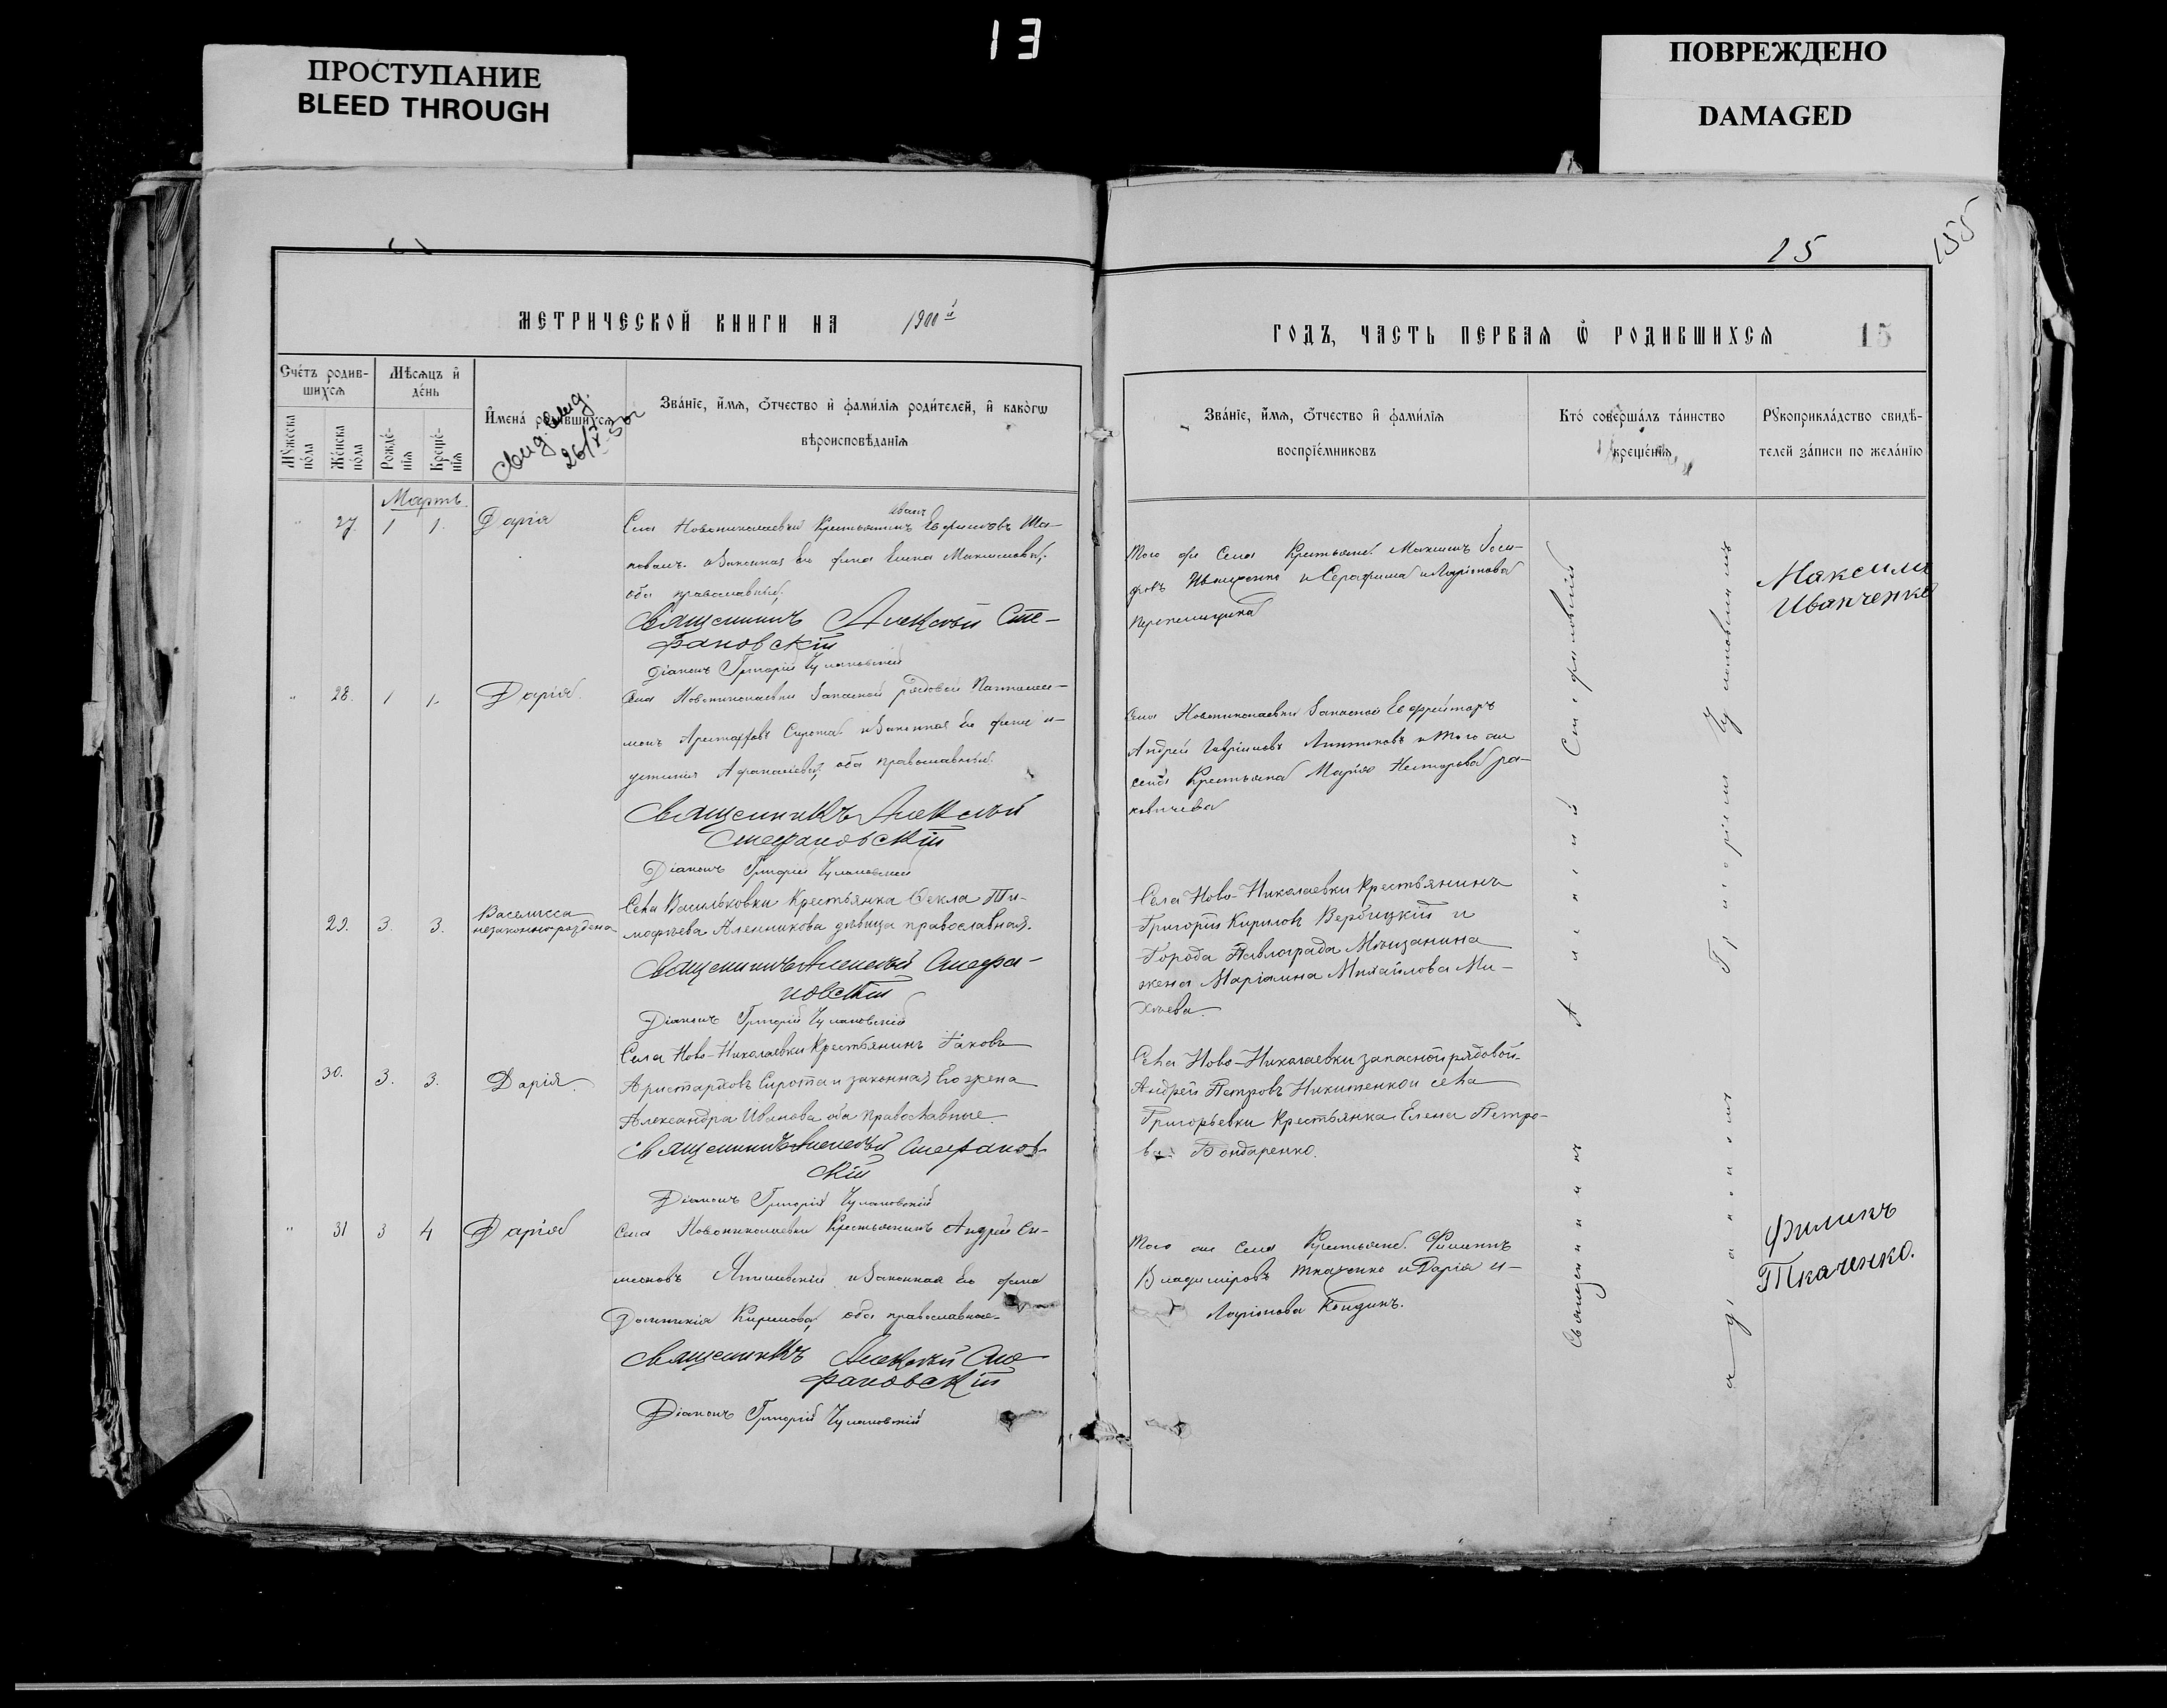 13
ПРОСТУПАНИЕ
BLEED THROUGH
ПОВРЕЖДЕНО
DAMAGED
15
155
МЕТРИЧЕСКОЙ КНИГИ НА 1900й
Счетъ родив-
шихся
Мѣсяцъ и
день
Мужеска
пола
Женска
пола
Рожде-
нія
Креще-
нія
Имена родившихся
26/V
Званіе, имя, отчество и фамилія родителей, и какогѡ
вѣроисповѣданія
Мартъ
27. 1 1. Дарія
Села Новониколаевки Крестьянинъ Иванъ Ефимовъ Ша-
повалъ и Законная его жена Елена Максимова,
оба православные,
Священникъ Алексѣй Сте-
фановскій
Діаконъ Григорій
28. 1 1. Дарія
Села Новониколаевки Запасной рядовой
Аристарховъ Сирота и Законная его жена и-
устинія Афанасіева, оба православные.
Священникъ Алексѣй
Стефановскій
Діаконъ Григорій
29. 3. 3. Василисса
незаконно-рождена
Села Васильковки Крестьянка Ѳекла Ти-
мофѣева Аленникова дѣвица православная.
Священникъ Алексѣй Стефа-
новскій
Діаконъ Григорій
30. 3. 3. Дарія
Села Ново-Николаевки Крестьянинъ Іаковъ
Аристарховъ Сирота и законная Его жена
Александра Иванова оба Православные
Священникъ Алексѣй Стефанов-
скій
Діаконъ Григорій
31 3 4 Дарія
Села Новониколаевки Крестьянинъ Андрей Си-
меоновъ и Законная его жена
Домникія Кирилова, оба православные
Священникъ Алексѣй Сте-
фановскій
Діаконъ Григорій
ГОДЪ, ЧАСТЬ ПЕРВАЯ Ѡ РОДИВШИХСЯ 15
Званіе, имя, отчество и фамилія
воспріемниковъ
Кто совершалъ таинство
крещенія
Рукоприкладство свидѣ-
телей записи по желанію
Того же Села Крестьяне Максимъ Іоси-
фовъ Иванченко и Серафима Иларіонова
Перепелицина
Максимъ
Иванченко
Села Новониколаевки Запасной Ефрейторъ
Андрей Гавріиловъ и того же
села Крестьянка Марія Несторова
Села Ново-Николаевки Крестьянинъ
Григорій Кириловъ Вербицкій и
Города Павлограда Мѣщанина
жена Маріамна Михайлова Ми-
хѣева
Села Ново-Николаевки запасной рядовой
Андрей Петровъ Никитенко и села
Григорьевки Крестьянка Елена Петро-
ва Бондаренко.
Того же Села Крестьяне Филиппъ
Владиміровъ Ткаченко и Дарія И-
ларіонова
Филипъ
Ткаченко.
Священникъ Алексѣй Стефановскій
съ діакономъ Григоріемъ